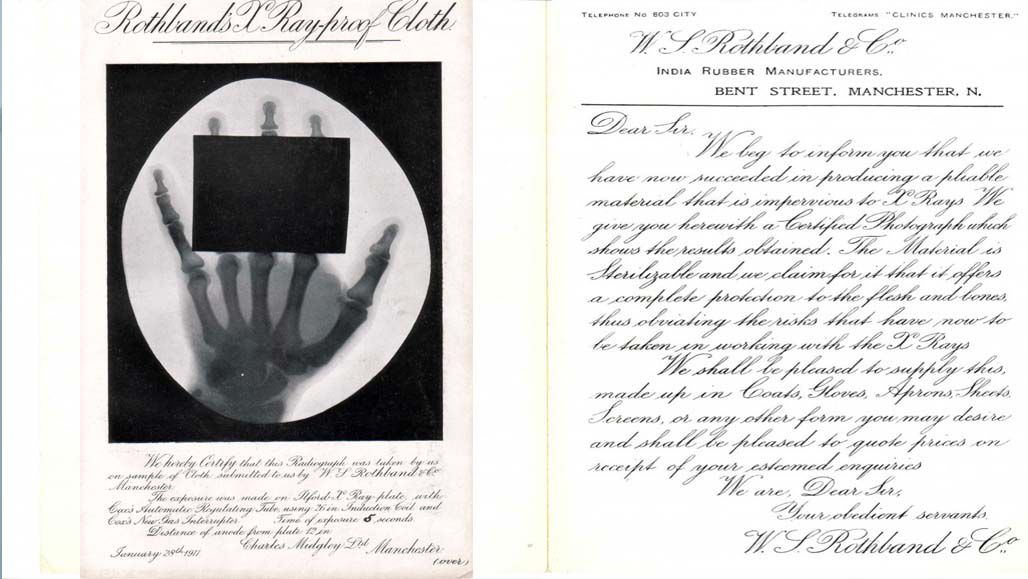 Rothband's X Ray-proof Cloth.
We hereby Certify that this Radiograph was taken by us
on sample of Cloth submitted to us by W. S. Rothband & Co
Manchester.
The exposure was made on Ilford-X Ray-plate, with
Cox's Automatic Regulating Tube, using 26 in Induction Coil and
Cox's New Gas Interrupter. Time of exposure 5, seconds.
Distance of anode from plate 12 in.
Charles Midgley Ltd Manchester
January 28th 1911
(over)
TELEPHONE NO 603 CITY
TELEGRAMS "CLINICS MANCHESTER."
W. S. Rothband & Co.
INDIA RUBBER MANUFACTURERS.
BENT STREET, MANCHESTER, N.
Dear Sir,
We beg to inform you that we
have now succeeded in producing a pliable
material that is impervious to X Rays We
give you herewith a Certified Photograph which
shows the results obtained. The Material is
Sterilizable and we claim for it that it offers
a complete protection to the flesh and bones,
thus obviating the risks that have now to
be taken in working with the X Rays
We shall be pleased to supply this,
made up in Coats, Gloves, Aprons, Sheets,
Screens, or any other form you may desire
and shall be pleased to quote prices on
receipt of your esteemed enquiries
We are, Dear Sir,
Your obedient servants,
W. S. Rothband & Co.